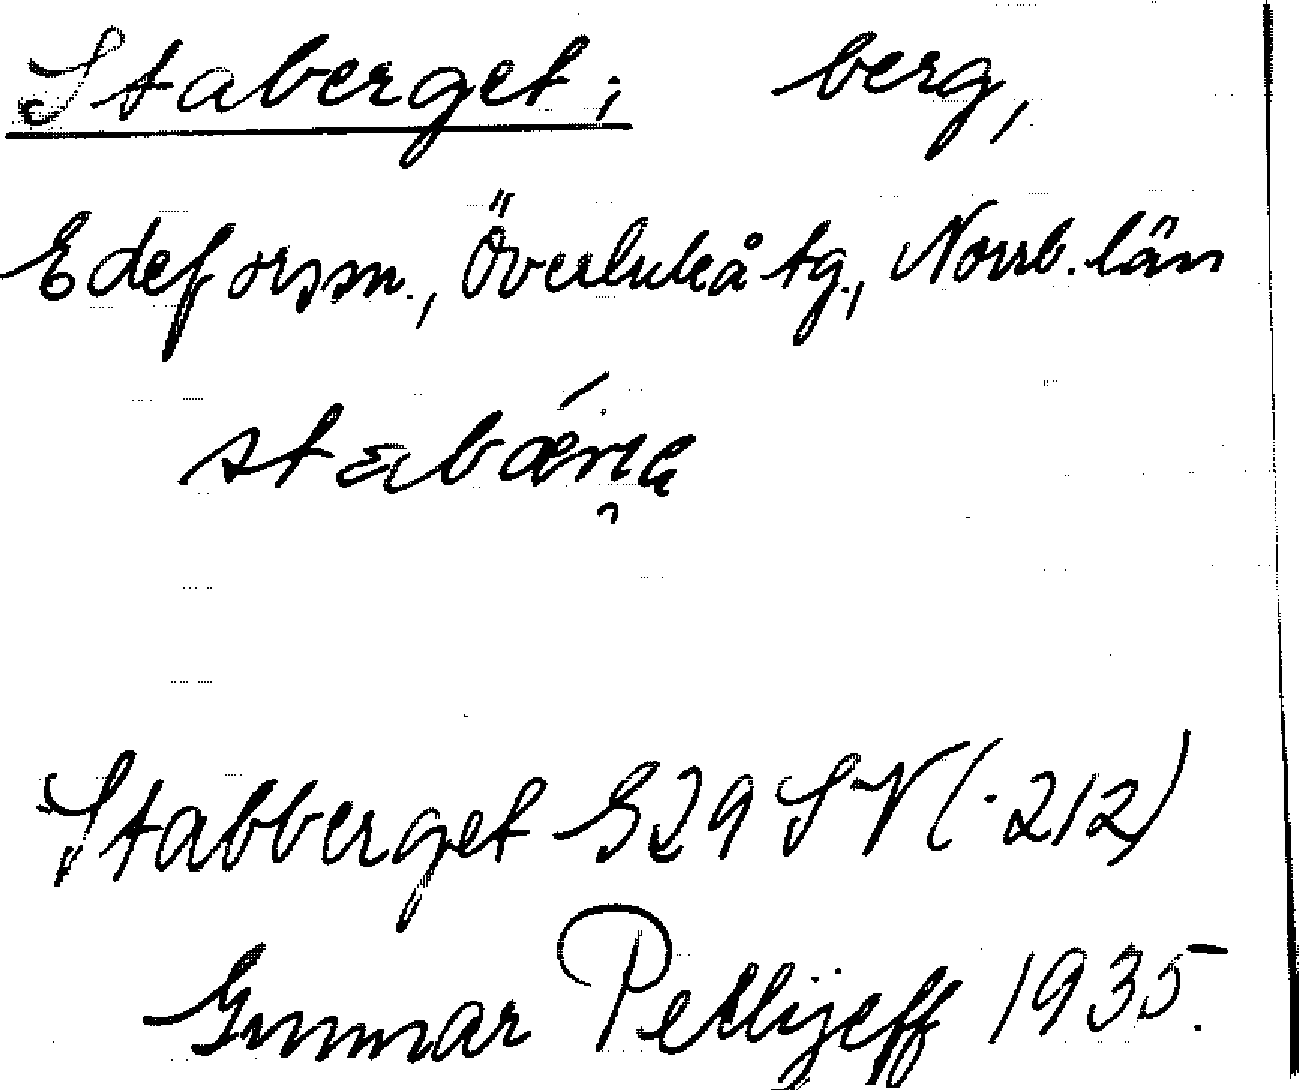 Staberget; berg,
Edeforssn., Överluleå tg., Norrb. län
Stabberget S29 SV (·212)
Gunnar Pellijeff 1935.